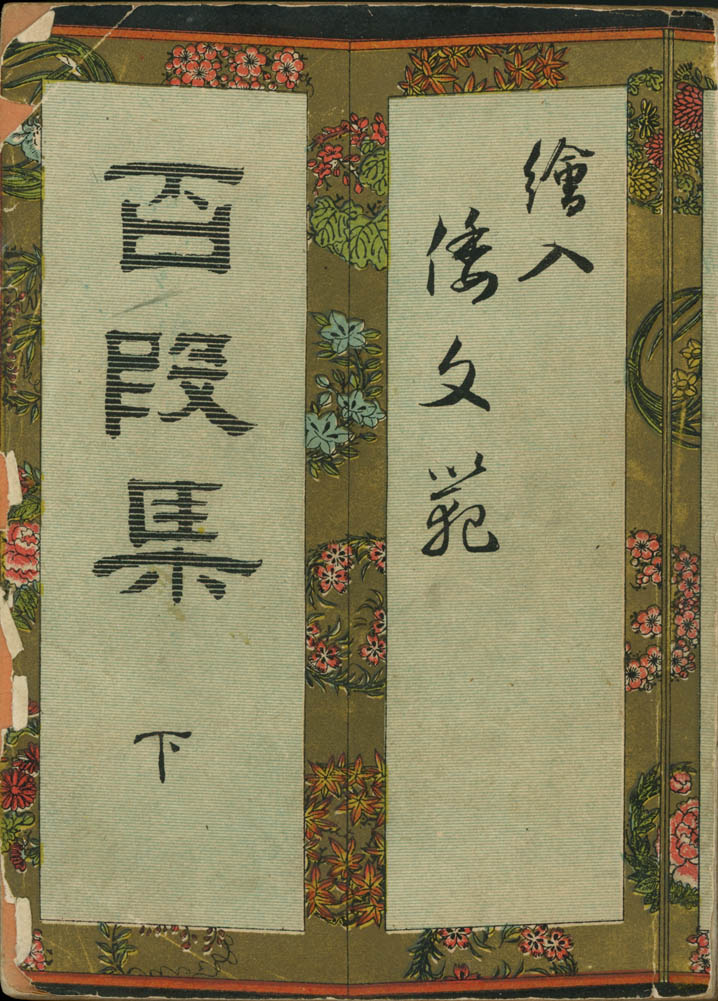 繪入
倭文範
百段集
下